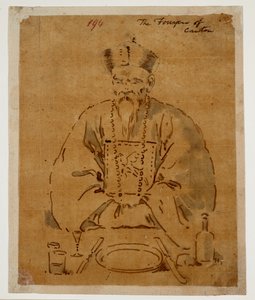 196
The Fouyen of
Canton